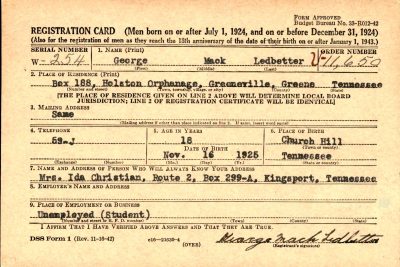 FORM APPROVED
Budget Bureau No. 33-R012-42
REGISTRATION CARD (Men born on or after July 1, 1924, and on or before December 31, 1924)
(Also for the registration of men as they reach the 18th anniversary of the date of their birth on or after January 1, 1943.)
SERIAL NUMBER 1. NAME (Print) ORDER NUMBER
W- 254 George Mack Ledbetter
(First) (Middle) (Last)
2. PLACE OF RESIDENCE (Print)
Box 188, Holston Orphanage, Greeneville, Greene, Tennessee
(Number and street) (Town, township, village, or city) (County) (State)
(THE PLACE OF RESIDENCE GIVEN ON LINE 2 ABOVE WILL DETERMINE LOCAL BOARD
JURISDICTION; LINE 2 OF REGISTRATION CERTIFICATE WILL BE IDENTICAL)
3. MAILING ADDRESS
Same
(Mailing address if other than place indicated on line 2. If same, insert word same)
4. TELEPHONE 5. AGE IN YEARS 6. PLACE OF BIRTH
59-J 18 Church Hill
DATE OF BIRTH (Town or county)
Nov. 16 1925 Tennessee
(Exchange) (Number) (Mo.) (Day) (Yr.) (State or country)
7. NAME AND ADDRESS OF PERSON WHO WILL ALWAYS KNOW YOUR ADDRESS
Mrs. Ida Christian, Route 2, Box 299-A, Kingsport, Tennessee
8. EMPLOYER'S NAME AND ADDRESS
9. PLACE OF EMPLOYMENT OR BUSINESS
Unemployed (Student)
(Number and street or R. F. D. number) (Town) (County) (State)
I AFFIRM THAT I HAVE VERIFIED ABOVE ANSWERS AND THAT THEY ARE TRUE.
DSS Form 1 (Rev. 11-16-42) (OVER) George Mack Ledbetter
(Registrant's signature)